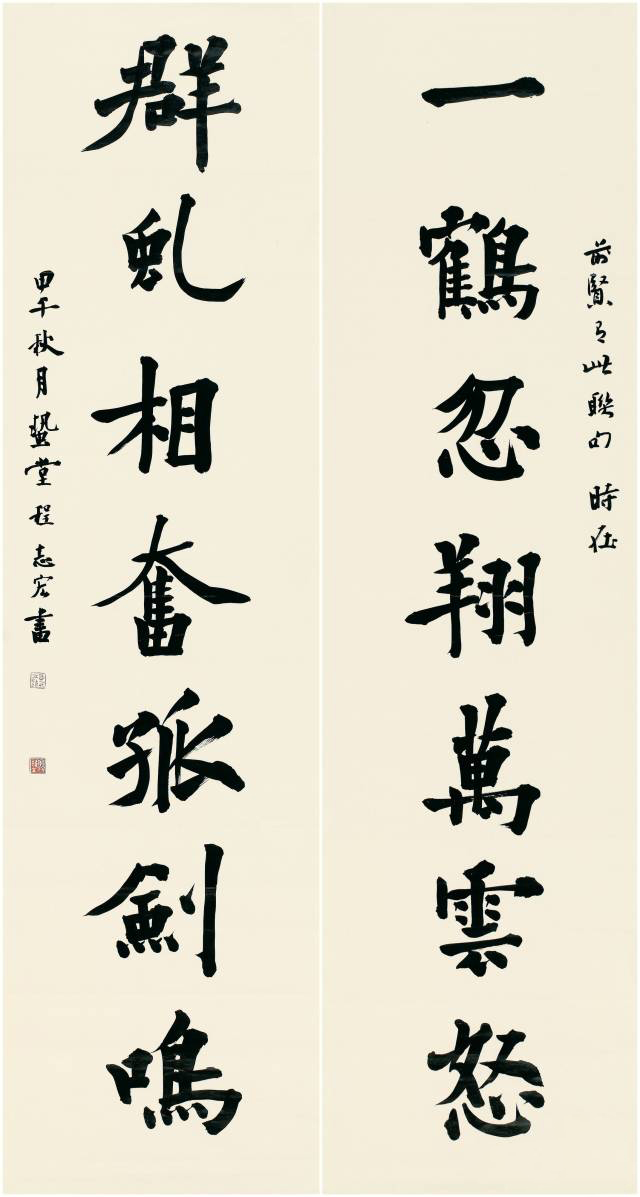 前賢有此聯句 時在
一鶴忽翔萬雲怒
群虬相奮孤劍鳴
甲午秋月蟄堂程志宏書